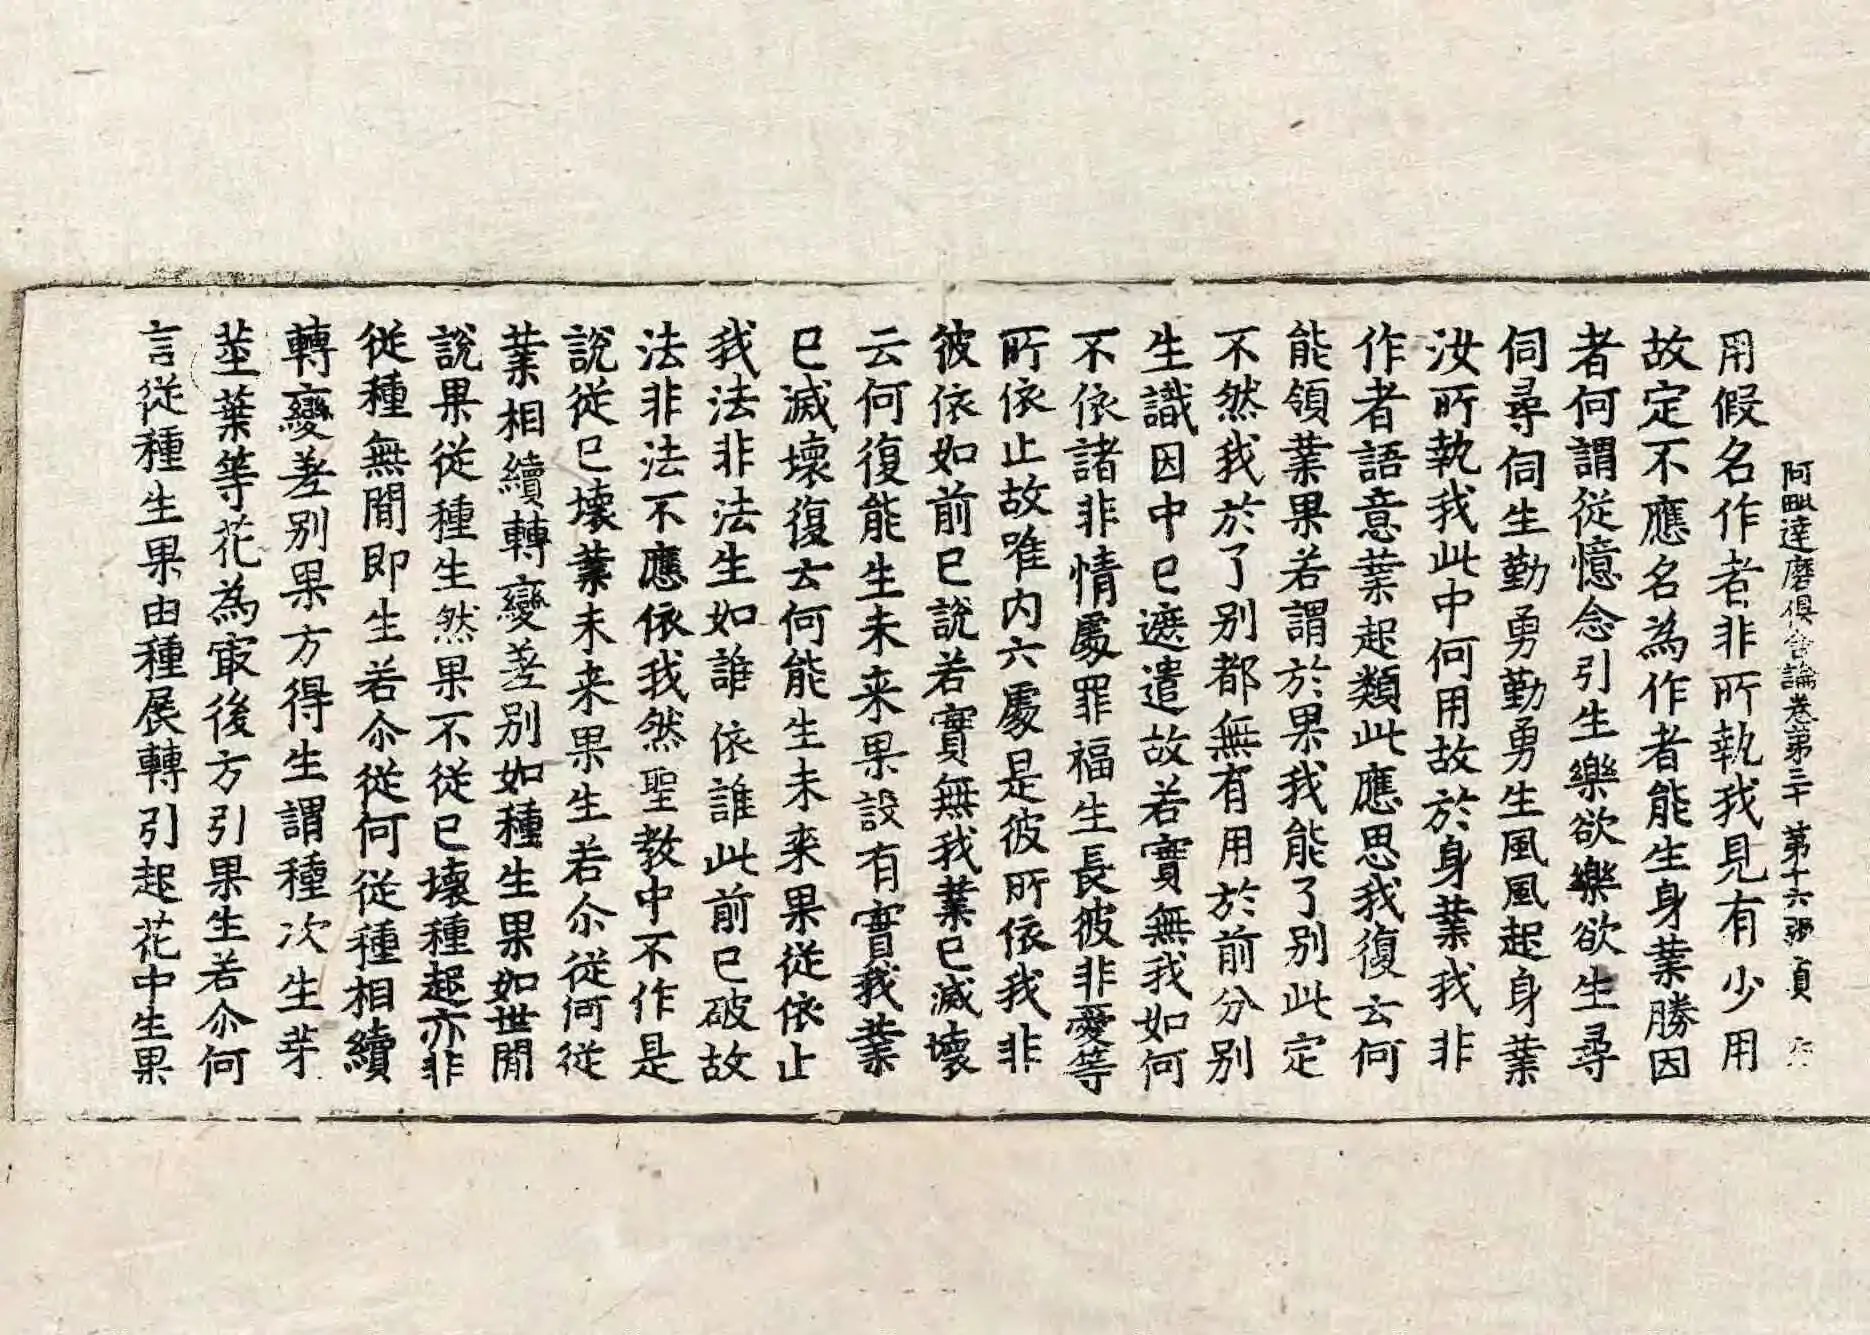 阿毗達磨俱舍論卷第三十 第十六張 貞
用假名作者非所執我見有少用
故定不應名為作者能生身業勝因
者何謂從憶念引生樂欲樂欲生尋
伺尋伺生勤勇勤勇生風風起身業
汝所執我此中何用故於身業我非
作者語意業起類此應思我復云何
能領業果若謂於果我能了別此定
不然我於了別都無有用於前分別
生識因中已遮遣故若實無我如何
不依諸非情處罪福生長彼非愛等
所依止故唯內六處是彼所依我非
彼依如前已說若實無我業已滅壞
云何復能生未來果設有實我業
已滅壞復云何能生未來果從依止
我法非法生如誰依誰此前已破故
法非法不應依我然聖教中不作是
說從已壞業未來果生若尒從何從
業相續轉變差別如種生果如世閒
說果從種生然果不從已壞種起亦非
從種無閒即生若尒從何從種相續
轉變差別果方得生謂種次生芽
莖葉等花為㝡後方引果生若尒何
言從種生果由種展轉引起花中生果